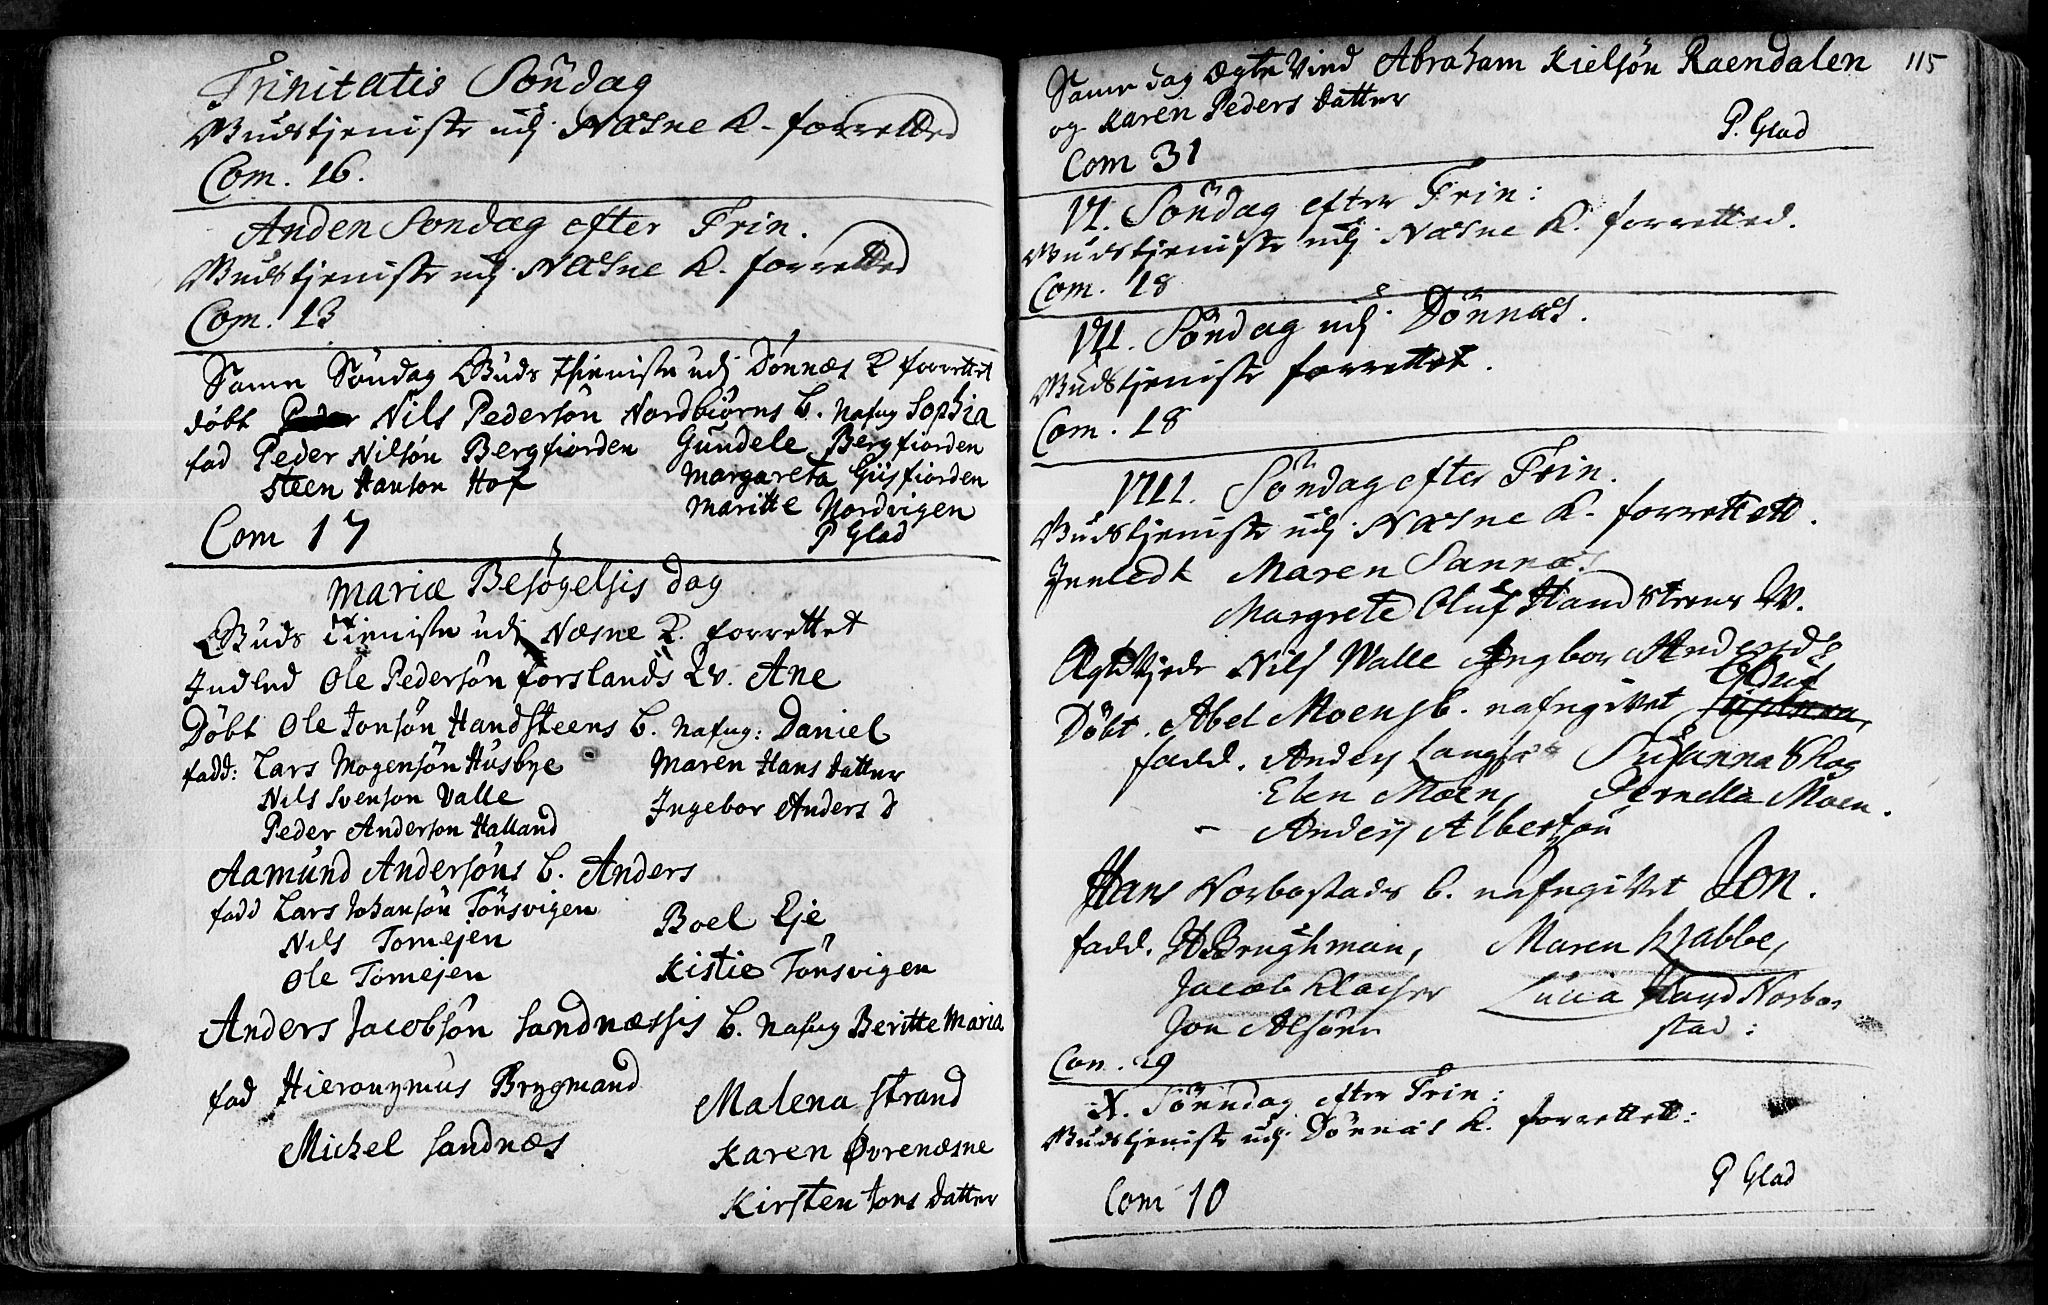 Trinitatis Söndag
Gudstjeniste udj Næsne K. forretted
Com. 16.
Anden Söndag efter Trin.
Gudstjeniste udj Næsne K. forretted
Com. 13
Same Söndag Guds thieniste udj Dönnæs K forrettet
döbt Nils Pedersön Nordbiörns b. Nafng Sophia
fad Peder Nilsön Bergfiorden Gundele Bergfiorden
Steen Hanson Hof Margareta Giisfiorden
Maritte Nordvigen
Com 17 P Glad
Mariæ Besögelsis dag
Guds Tieniste udj Næsne K. forrettet
Indled Ole Pedersön forslands Qv. Ane
Döbt Ole Jonsön Handsteens b. Nafng: Daniel
fadd: Lars Mogensön Husbye Maren Hans datter
Nils Svenson Valle Ingebor Anders d
Peder Anderson Halland
Aamund Andersöns b. Anders
fadd Lars Johansön Tönsvigen Boel Eje
Nils Tomejen
Ole Tomejen Kistie Tönsvigen
Anders Jacobsön Sandnæssis b. Nafng Beritte Maria
fad Hieronymus Brygmand Malena Strand
Michel Sandnæs Karen Øvrenæsne
Kirsten Jons datter
115
Same dag ægte Vied Abraham Kielsön Raendalen
og Karen Peders datter
P. Glad
Com 31
VI. Söndag efter Trin:
Gudstjeniste udj Næsne K. forretted.
Com. 18
VII. Söndag udj Dönnæs.
Gudstjeniste forrettet.
Com. 18
VIII. Söndag efter Trin.
Gudstjeniste udj Næsne K. forrettett.
Innledt Maren Sannæs
Margrete Oluf Handsteens W.
Ægtevjede Nils Walle Ingbor Andersd
Oluf
Döbt. Abel Moens b. nafngivet
fadd. Anders Susanna Skog
Elen Moen, Pernella Moen.
Anders Albertsön
Hans Norbostads b. nafngivet Jon.
fadd. H. Brughman, Maren Krabbe,
Jacob Klæsen Lucia Hans Norbo
Jon Alsönn stad:
Com. 29
X. Sönndag efter Trin:
Gudstjeniste udj Dönnæs K. forrettett:
P Glad
Com 10